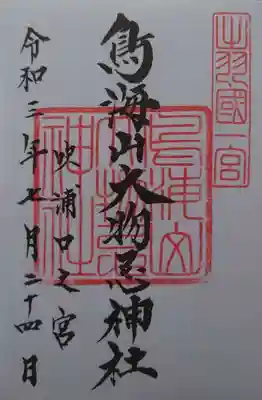 出羽國一宮
鳥海山大物忌神社
吹浦口之宮
令和三年七月二十四日